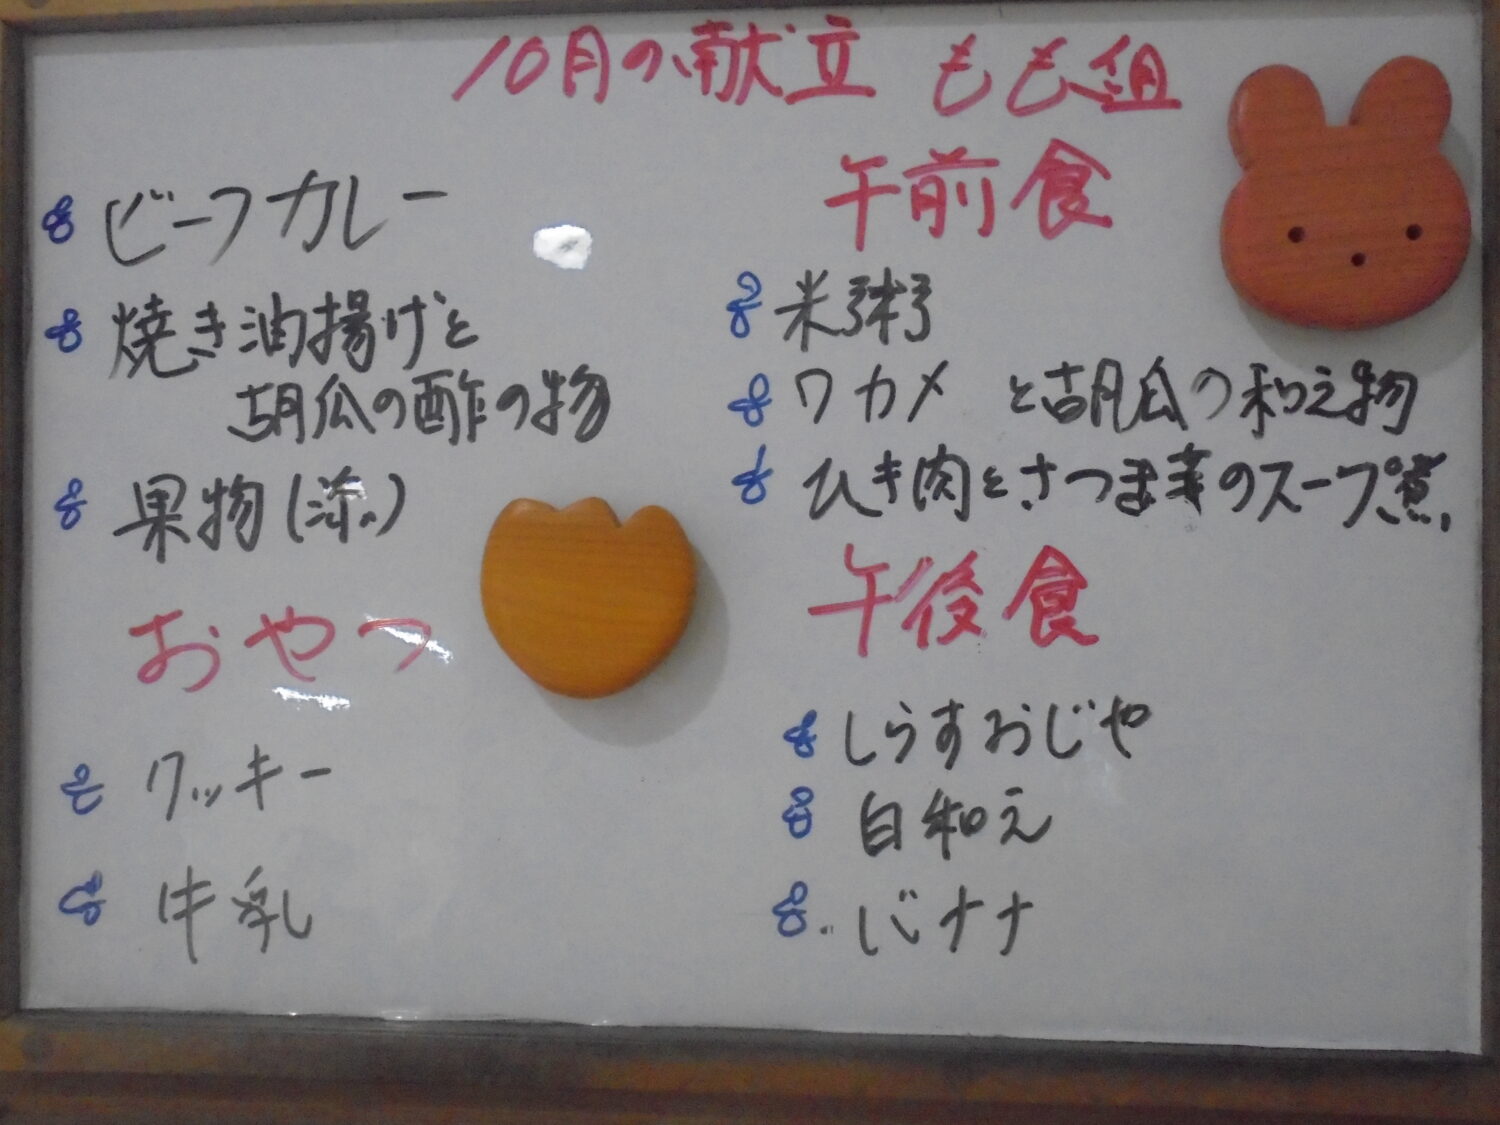 10月の献立 もも組
ビーフカレー
焼き油揚げと
胡瓜の酢の物
果物(添)
おやつ
クッキー
牛乳
午前食
米粥
ワカメ と胡瓜の和え物
ひき肉とさつま芋のスープ煮
午後食
しらすおじや
白和え
バナナ